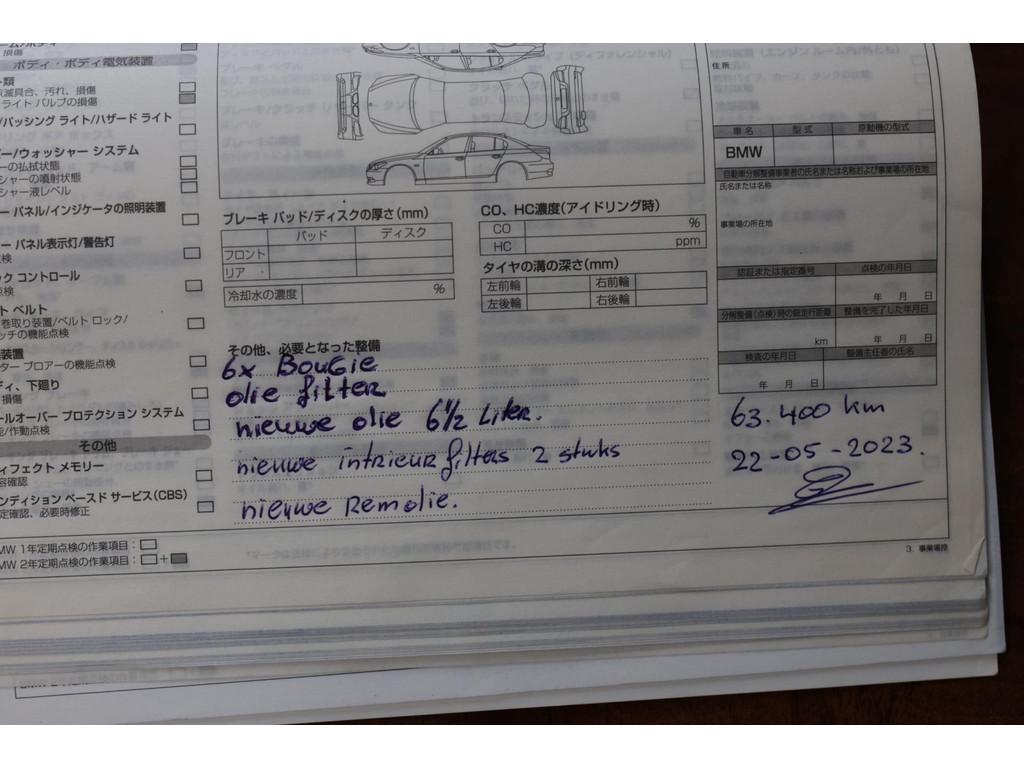 損傷
ボディ・ボディ電気装置
点滅具合、汚れ、損傷
ライト バルブの損傷
/パッシング ライト/ハザード ライト
ー/ウォッシャー システム
ーの払拭状態
シャーの噴射状態
シャー液レベル
ー パネル/インジケータの照明装置
ー パネル表示灯/警告灯
点検
ック コントロール
点検
ト ベルト
巻取り装置/ベルト ロック/
ッチの機能点検
装置
ター ブロアーの機能点検
ディ、下廻り
損傷
ールオーバー プロテクション システム
能/作動点検
その他
ィフェクト メモリー
容確認
ンディション ベースド サービス(CBS)
定確認、必要時修正
MW 1年定期点検の作業項目:
MW 2年定期点検の作業項目: +
ブレーキ パッド/ディスクの厚さ(mm)
パッド ディスク
フロント
リア
冷却水の濃度 %
CO、HC濃度(アイドリング時)
CO %
HC ppm
タイヤの溝の深さ(mm)
左前輪 右前輪
左後輪 右後輪
その他、必要となった整備
6x BouGie
olie filter
nieuwe olie 6 1/2 Liter.
nieuwe intrieur filters 2 stuks
nieuwe Remolie.
住所
車名 型式 原動機の型式
BMW
自動車分解整備事業者の氏名または名称および事業場の所在地
氏名または名称
事業場の所在地
認証または指定番号 点検の年月日
年 月 日
分解整備(点検)時の総走行距離 整備を完了した年月日
km 年 月 日
検査の年月日 整備主任者の氏名
年 月 日
63.400 km
22-05-2023.
3. 事業場控